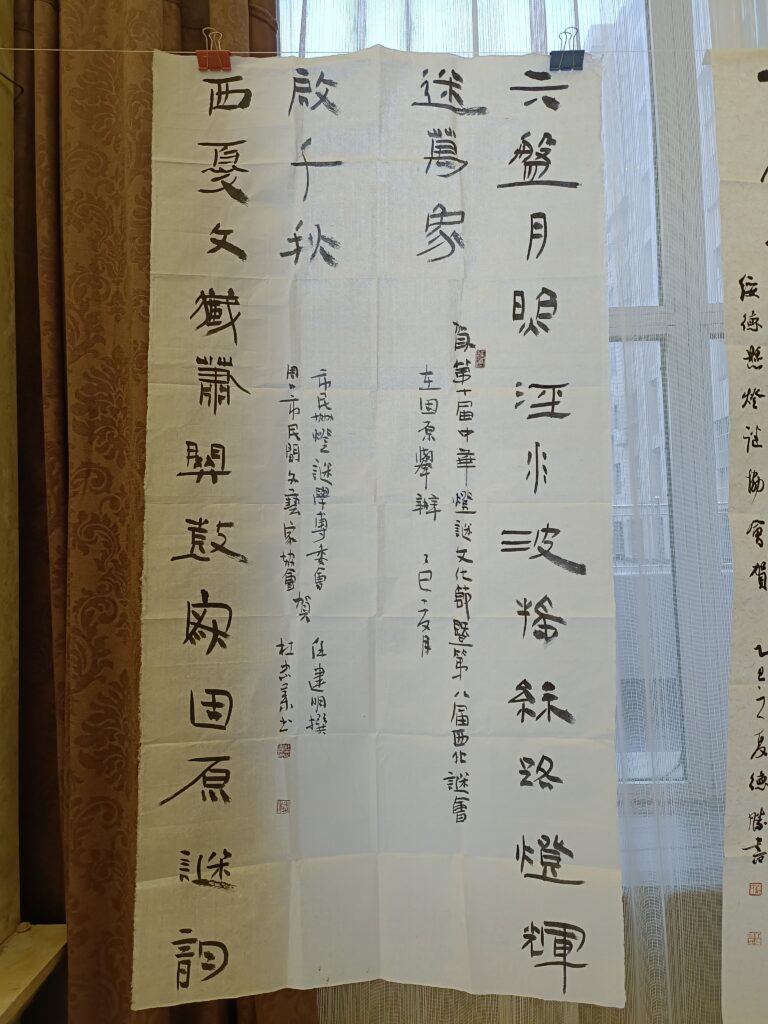 綏德縣燈謎協會賀 乙巳之夏德勝書
六盤月明涇水波播絲路燈輝
迷萬象
賀第十届中華燈謎文化節暨第八届西北謎會
在固原舉辦 乙巳夏月
西夏文獻蕭關鼓固原謎韻
啟千秋
市民協燈謎學專委會 任建明撰
固原市民間文藝家協會賀 杜志書